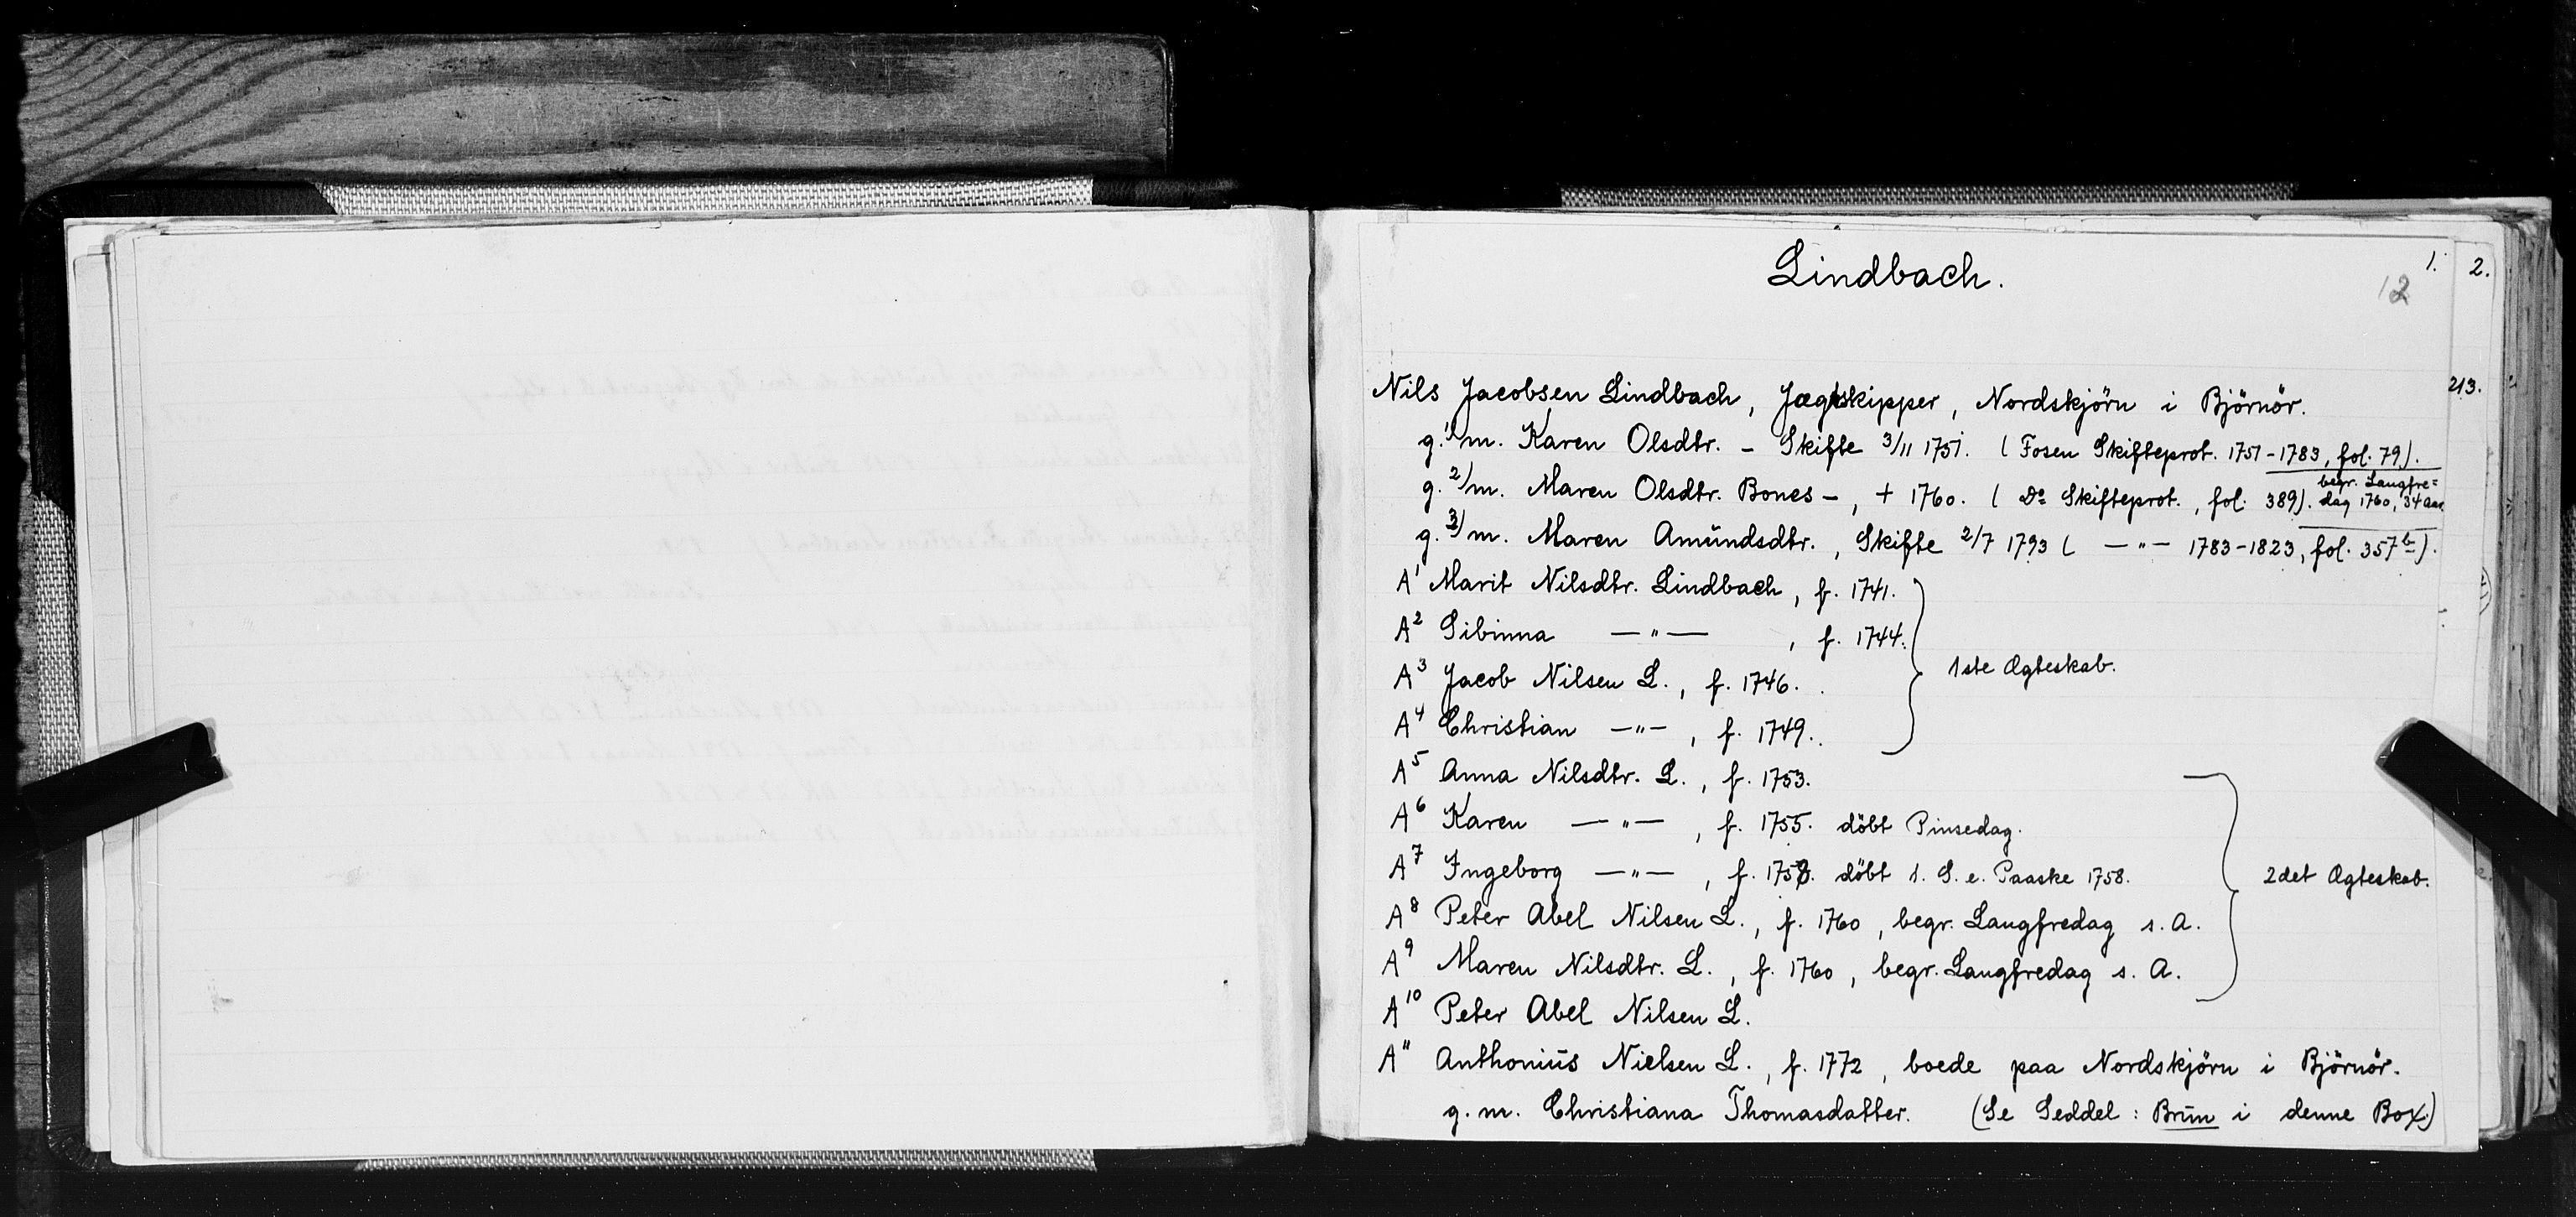 Lindbach.
1. 2.
12
Nils Jacobsen Lindbach, Jægtskipper, Nordskjörn i Björnör. 213.
g. 1) m. Karen Olsdtr. - Skifte 3/11 1751. (Fosen Skifteprot. 1751-1783, fol. 79).
g. 2) m. Maren Olsdtr. Bones -, + 1760. (Do Skifteprot., fol. 389). begr. Langfre=
dag 1760, 34 aar
g. 3) m. Maren Amündsdtr., Skifte 2/7 1793 ( —"— 1783-1823, fol. 357b).
A1 Marit Nilsdtr. Lindbach, f. 1741.
A2 Sibinna —"—, f. 1744.
1ste Ægteskab.
A3 Jacob Nilsen L., f. 1746.
A4 Christian —"—, f. 1749.
A5 Anna Nilsdtr. L., f. 1753.
A6 Karen —"—, f. 1755. döbt Pinsedag.
A7 Ingeborg —"—, f. 1758. döbt 1. S. e. Paaske 1758.
2det Ægteskab.
A8 Peter Abel Nilsen L., f. 1760, begr. Langfredag s. A.
A9 Maren Nilsdtr. L., f. 1760, begr. Langfredag s. A.
A10 Peter Abel Nilsen L.
A11 Anthoniüs Nielsen L., f. 1772, boede paa Nordskjörn i Björnör.
g. m. Christiana Thomasdatter. (Se Seddel: Brün i denne Box.)